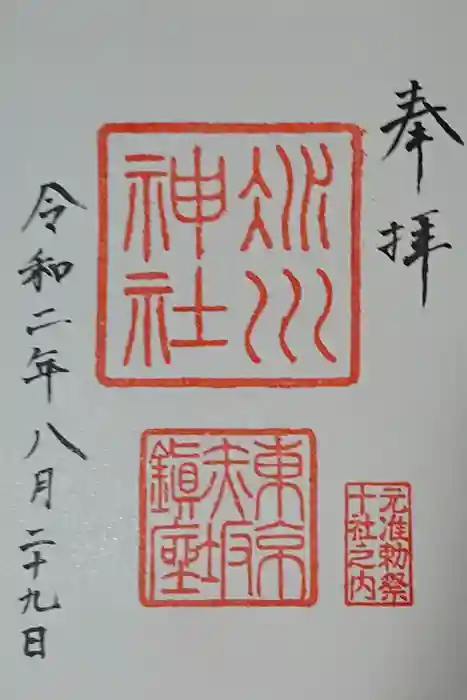 奉拝
氷川
神社
東京
赤坂
鎮座
元准勅祭
十社之内
令和二年八月二十九日